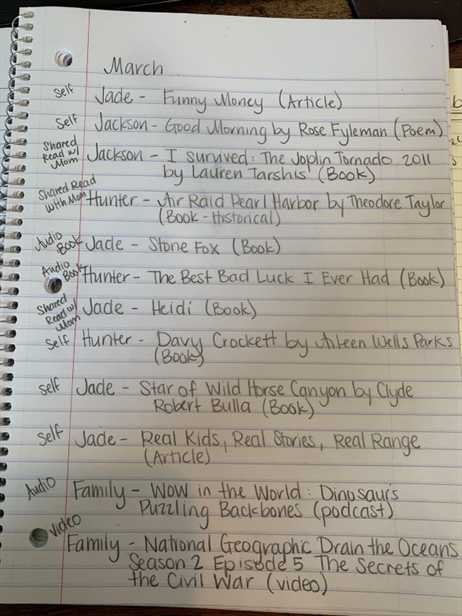 March
Self Jade - Funny Money (Article)
Self Jackson - Good Morning by Rose Fyleman (Poem)
Shared Read w/ Mom Jackson - I Survived: The Joplin Tornado 2011
by Lauren Tarshis (Book)
Shared Read with Mom Hunter - Air Raid Pearl Harbor by Theodore Taylor
(Book - Historical)
Audio Book Jade - Stone Fox (Book)
Audio Book Hunter - The Best Bad Luck I Ever Had (Book)
Shared Read w/ Mom Jade - Heidi (Book)
Self Hunter - Davy Crockett by Aileen Wells Parks
(Book)
Self Jade - Star of Wild Horse Canyon by Clyde
Robert Bulla (Book)
Self Jade - Real Kids, Real Stories, Real Range
(Article)
Audio Family - Wow in the World: Dinosaur's
Puzzling Backbones (podcast)
Video Family - National Geographic Drain the Oceans
Season 2 Episode 5 The Secrets of
the Civil War (video)